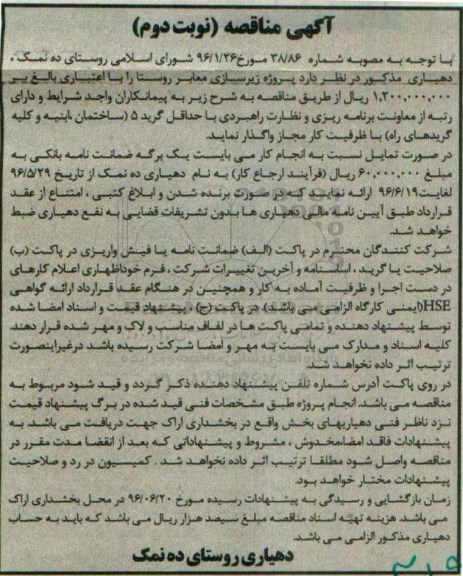 آگهی مناقصه (نوبت دوم)
با توجه به مصوبه شماره ۳۸/۸۶ مورخ ۹۶/۱/۲۶ شورای اسلامی روستای ده نمک ،
دهیاری مذکور در نظر دارد پروژه زیرسازی معابر روستا را با اعتباری بالغ بر
۱,۲۰۰,۰۰۰,۰۰۰ ریال از طریق مناقصه به شرح زیر به پیمانکاران واجد شرایط و دارای
رتبه از معاونت برنامه ریزی و نظارت راهبردی با حداقل گرید ۵ (ساختمان ،ابنیه و کلیه
گریدهای راه) با ظرفیت کار مجاز واگذار نماید.
در صورت تمایل نسبت به انجام کار می بایست یک برگه ضمانت نامه بانکی به
مبلغ ۶۰,۰۰۰,۰۰۰ ریال (فرآیند ارجاع کار) به نام دهیاری ده نمک از تاریخ ۹۶/۵/۲۹
لغایت ۹۶/۶/۱۹ ارائه نمایند که در صورت برنده شدن و ابلاغ کتبی ، امتناع از عقد
قرارداد طبق آیین نامه مالی دهیاری ها بدون تشریفات قضایی به نفع دهیاری ضبط
خواهد شد.
شرکت کنندگان محترم در پاکت (الف) ضمانت نامه یا فیش واریزی در پاکت (ب)
صلاحیت یا گرید ، اساسنامه و آخرین تغییرات شرکت ، فرم خوداظهاری اعلام کارهای
در دست اجرا و ظرفیت آماده به کار و همچنین در هنگام عقد قرارداد ارائه گواهی
HSE(ایمنی کارگاه الزامی می باشد) در پاکت (ج) ، پیشنهاد قیمت و اسناد امضا شده
توسط پیشنهاد دهنده و تمامی پاکت ها در لفاف مناسب و لاک و مهر شده قرار دهند.
کلیه اسناد و مدارک می بایست به مهر و امضا شرکت رسیده باشد درغیراینصورت
ترتیب اثر داده نخواهد شد.
در روی پاکت آدرس شماره تلفن پیشنهاد دهنده ذکر گردد و قید شود مربوط به
مناقصه می باشد. انجام پروژه طبق مشخصات فنی قید شده در برگ پیشنهاد قیمت
نزد ناظر فنی دهیاریهای بخش واقع در بخشداری اراک جهت دریافت می باشد. به
پیشنهادات فاقد امضامخدوش ، مشروط و پیشنهاداتی که بعد از انقضا مدت مقرر در
مناقصه واصل شود مطلقا ترتیب اثر داده نخواهد شد . کمیسیون در رد و صلاحیت
پیشنهادات مختار خواهد بود.
زمان بازگشایی و رسیدگی به پیشنهادات رسیده مورخ ۹۶/۰۶/۲۰ در محل بخشداری اراک
می باشد. هزینه تهیه اسناد مناقصه مبلغ سیصد هزار ریال می باشد که باید به حساب
دهیاری مذکور الزامی می باشد.
دهیاری روستای ده نمک